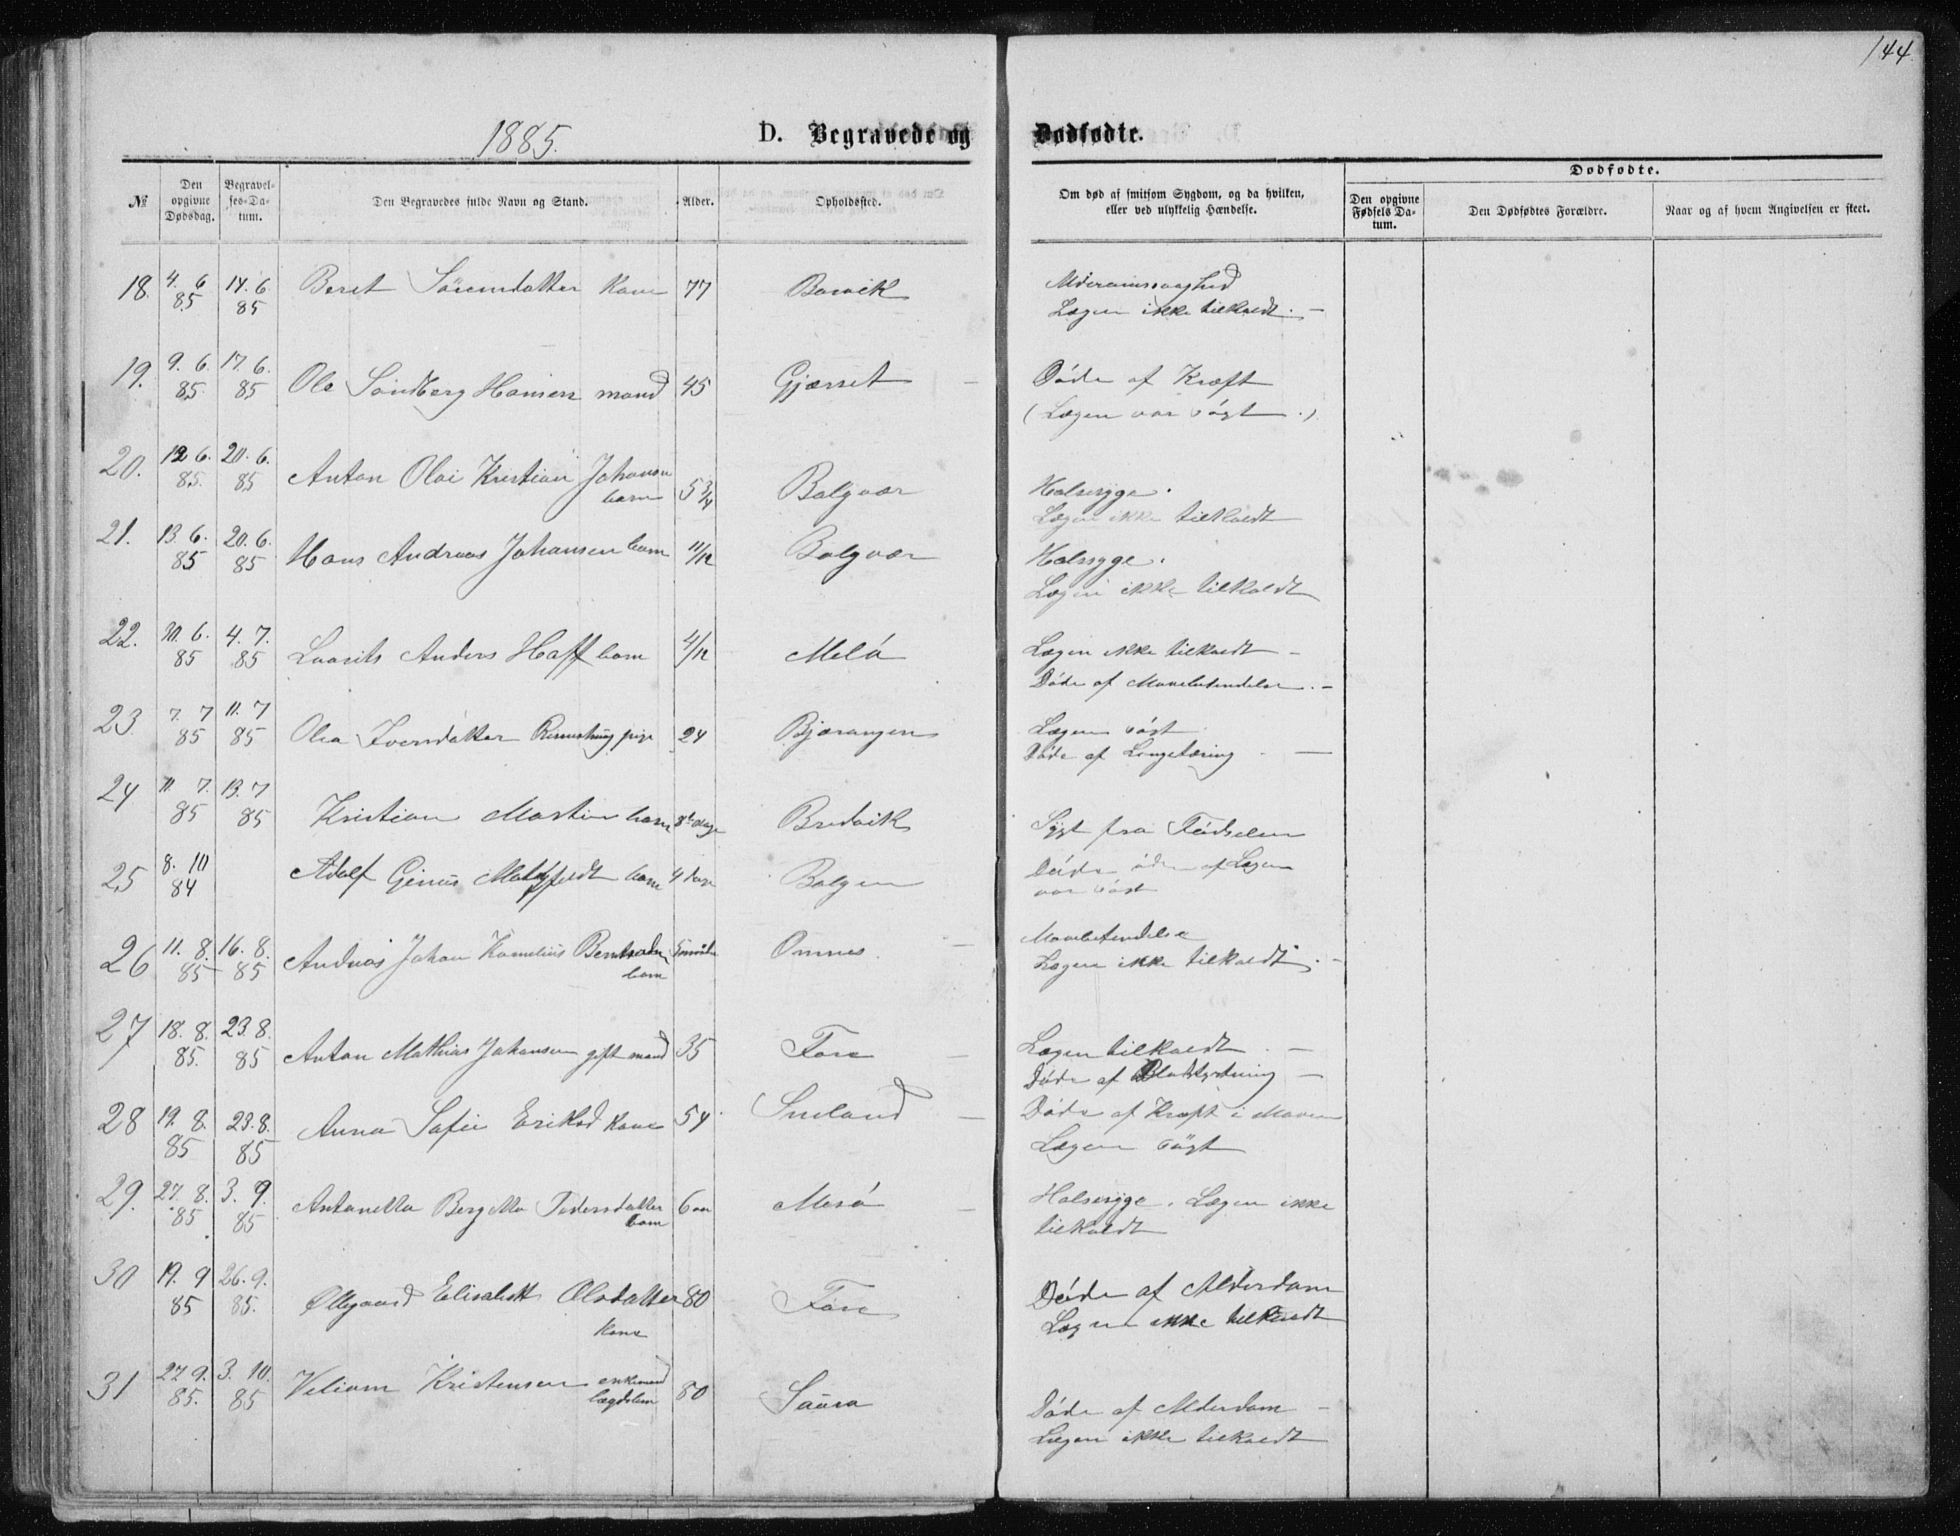 144
1885.
D. Begravede og Dødfødte.
№
Den opgivne Dødsdag.
Begravelses-Datum.
Den Begravedes fulde Navn og Stand.
Alder.
Opholdssted.
Om død af smitsom Sygdom, og da hvilken, eller ved ulykkelig Hændelse.
Dødfødte.
Den opgivne Fødsels Datum.
Den Dødfødtes Forældre.
Naar og af hvem Angivelsen er skeet.
18. 4. 6 85 14. 6 85 Beret Sörensdatter Kone 77
Lægen ikke tilkaldt. —
19. 9. 6. 85. 17. 6. 85 Ole Sandberg Hansen mand 45 Gjærset — Döde af Kræft
(Lægen var sögt.)
20. 12 6. 85. 20. 6. 85 Anton Olai Kristian Johansen barn 5 3/4 Bolgvær Halssyge.
Lægen ikke tilkaldt
21. 13. 6. 85 20. 6. 85 Hans Andreas Johansen barn 11/12 Bolgvær Halssyge.
Lægen ikke tilkaldt
22. 30. 6. 85 4. 7. 85 Laurits Anders Haff barn 4/12 Melö Lægen ikke tilkaldt —
Döde af Mavebetendelse. —
23 7. 7 85 11. 7 85 Olea Iversdatter pige 24 Bjærangen Lægen sögt.
Döde af Lungetæring. —
24 11. 7. 85 13. 7 85 Kristian Martin barn 8 dage Bredvik Sygt fra Födselen
25 8. 10 84 Adolf barn 4 dage Bolgen Döde af Lægen
var sögt
26 11. 8. 85 16. 8. 85 Andreas Johan Kornelius barn Omnes — Mavebetendelse
Lægen ikke tilkaldt. —
27 18. 8. 85. 23. 8. 85 Anton Mathias Johansen gift mand 35 Fore — Lægen tilkaldt. —
Döde af Blodstyrtning —
28 19. 8. 85 23. 8. 85 Anna Sofie Eriksd Kone 54 — Döde af Kræft i Maven
Lægen sögt
29. 27. 8. 85 3. 9. 85 Antonetta Bergitta Pedersdatter barn 6 aar Mesö — Halssyge. Lægen ikke
tilkaldt
30 19. 9 85 26. 9. 85. Ollegaard Elisabett Olsdatter kone 80 Fore Döde af Alderdom
Lægen ikke tilkaldt
31 27 9. 85. 3. 10. 85 Viliam Kristensen enkemand lægdslem 80 Saura Döde af Alderdom —
Lægen ikke tilkaldt